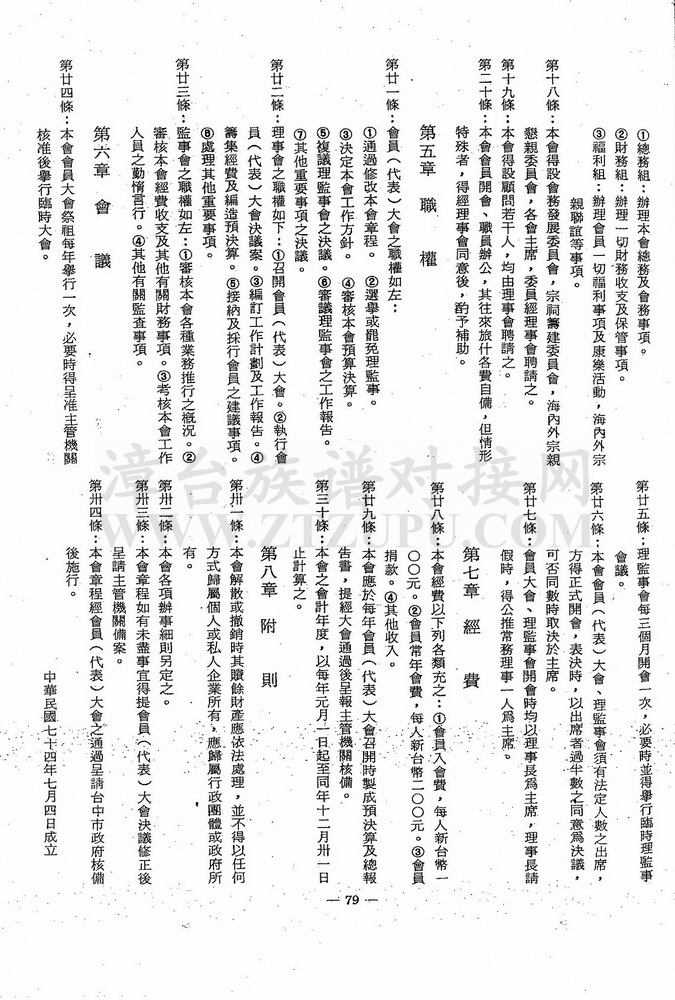 ①總務組：辦理本會總務及會務事項。
②財務組：辦理一切財務收支及保管事項。
③福利組：辦理會員一切福利事項及康樂活動，海內外宗
親聯誼等事項。
第十八條：本會得設會務發展委員會，宗祠籌建委員會，海內外宗親
懇親委員會，各會主席，委員經理事會聘請之。
第十九條：本會得設顧問若干人，均由理事會聘請之。
第二十條：本會會員開會、職員辦公，其往來旅什各費自備，但情形
特殊者，得經理事會同意後，酌予補助。
第五章 職權
第廿一條：會員（代表）大會之職權如左：
①通過修改本會章程。 ②選舉或罷免理監事。
③決定本會工作方針。 ④審核本會預算決算。
⑤複議理監事會之決議。⑥審議理監事會之工作報告。
⑦其他重要事項之決議。
第廿二條：理事會之職權如下：①召開會員（代表）大會。②執行會
員（代表）大會決議案。③編訂工作計劃及工作報告。④
籌集經費及編造預決算。⑤接納及採行會員之建議事項。
⑧處理其他重要事項。
第廿三條：監事會之職權如左：①審核本會各種業務推行之概況。②
審核本會經費收支及其他有關財務事項。③考核本會工作
人員之勤惰言行。④其他有關監查事項。
第六章 會議
第廿四條：本會會員大會祭祖每年舉行一次，必要時得呈准主管機關
核准後舉行臨時大會。
第廿五條：理監事會每三個月開會一次，必要時並得舉行臨時理監事
會議。
第廿六條：本會會員（代表）大會、理監事會須有法定人數之出席，
方得正式開會，表決時，以出席者過半數之同意為決議，
可否同數時取決於主席。
第廿七條：會員大會、理監事會開會時均以理事長為主席，理事長請
假時，得公推常務理事一人為主席。
第七章 經費
第廿八條：本會經費以下列各類充之：①會員入會費，每人新台幣一
〇〇元。②會員常年會費，每人新台幣二〇〇元。③會員
捐款。④其他收入。
第廿九條：本會應於每年會員（代表）大會召開時製成預決算及總報
告書，提經大會通過後呈報主管機關核備。
第三十條：本會之會計年度，以每年元月一日起至同年十二月卅一日
止計算之。
第八章 附則
第卅一條：本會解散或撤銷時其賸餘財產應依法處理，並不得以任何
方式歸屬個人或私人企業所有，應歸屬行政團體或政府所
有。
第卅二條：本會各項辦事細則另定之。
第卅三條：本會章程如有未盡事宜得提會員（代表）大會決議修正後
呈請主管機關備案。
第卅四條：本會章程經會員（代表）大會之通過呈請台中市政府核備
後施行。
中華民國七十四年七月四日成立
— 79 —
漳台族谱对接网
WWW.ZTZUPU.COM